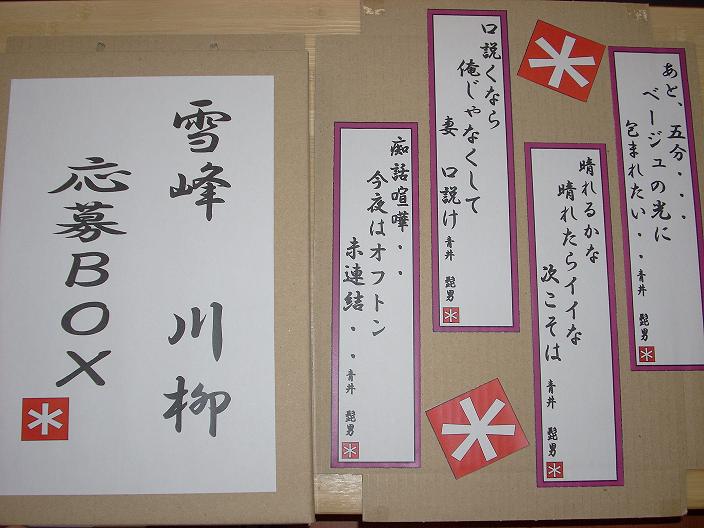 雪峰　川柳
応募BOX
あと、五分・・・
ベージュの光に
包まれたい・・青井　髭男
晴れるかな
晴れたらイイな
次こそは　青井　髭男
口説くなら
俺じゃなくして
妻　口説け　青井　髭男
痴話喧嘩・・
今夜はオフトン
未連結・・青井　髭男